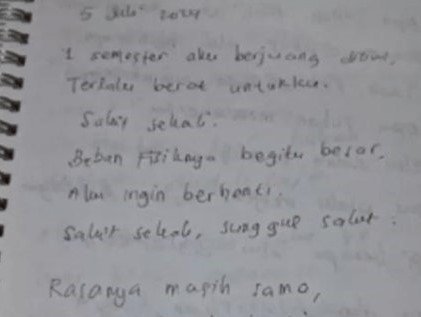 5 Juli 2024
1 semester aku berjuang disini.
Terlalu berat untukku.
Sakit sekali.
Beban Fisiknya begitu besar.
Aku ingin berhenti.
Sakit sekali, sungguh sakit.
Rasanya masih sama,